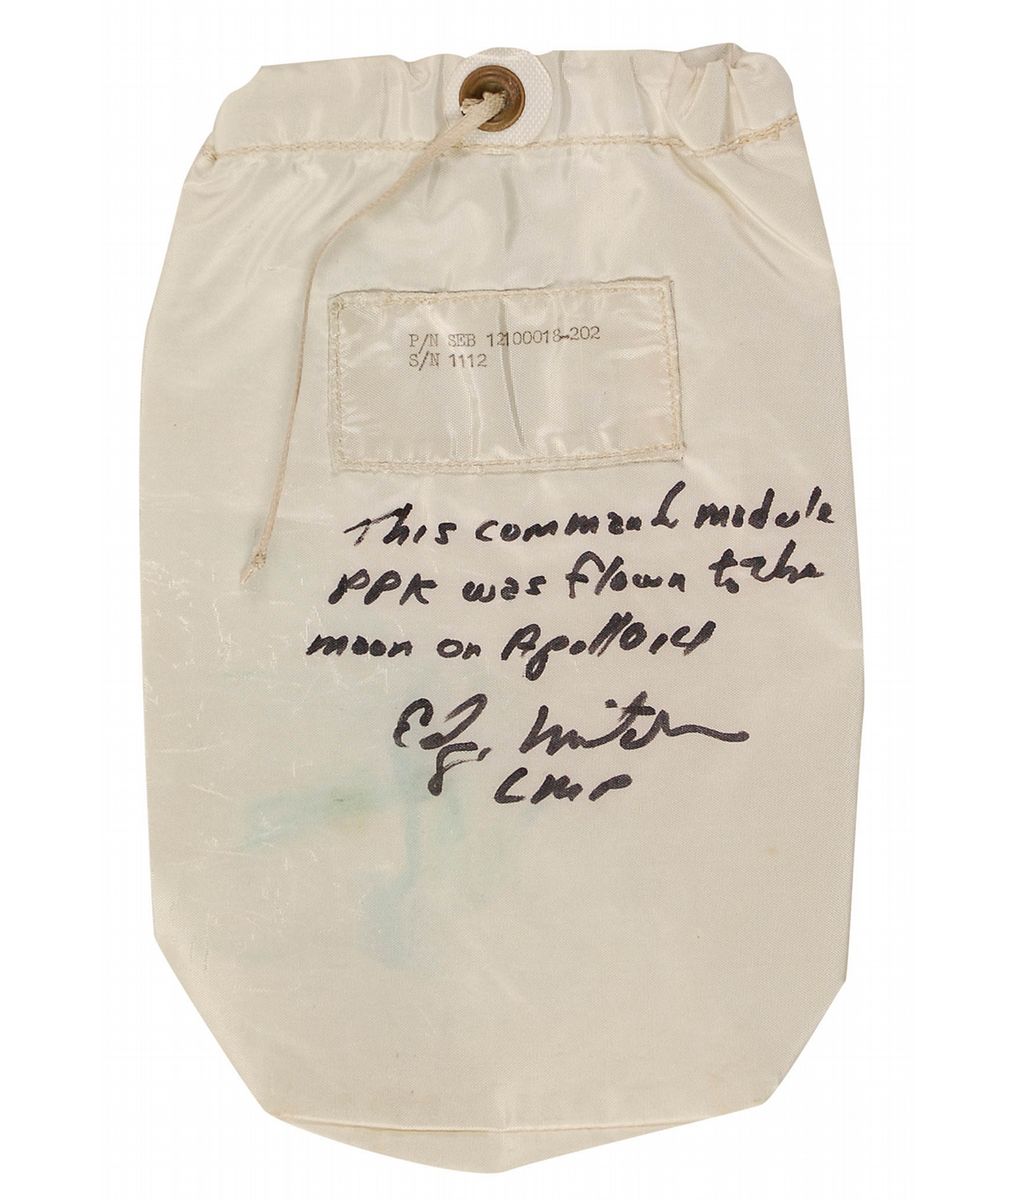 P/N SEB 12100018-202
S/N 1112
This command module
PPK was flown to the
moon on Apollo 14
Edgar Mitchell
LMP